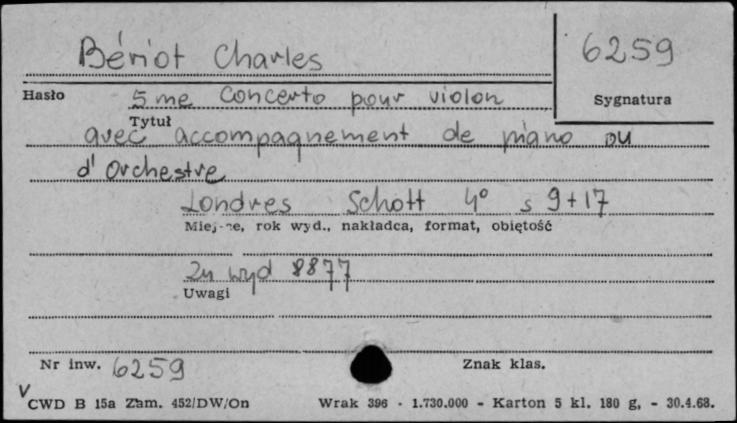 Bériot Charles
6259
Hasło
5me Concerto pour violon
Sygnatura
Tytuł
avec accompagnement de piano ou
d'Orchestre
Londres Schott 4° s 9+17
Miejsce, rok wyd., nakładca, format, objętość
Zn wyd 8877
Uwagi
Nr inw. 6259
Znak klas.
V
CWD B 15a Zam. 452/DW/On Wrak 396 - 1.730.000 - Karton 5 kl. 180 g, - 30.4.68.